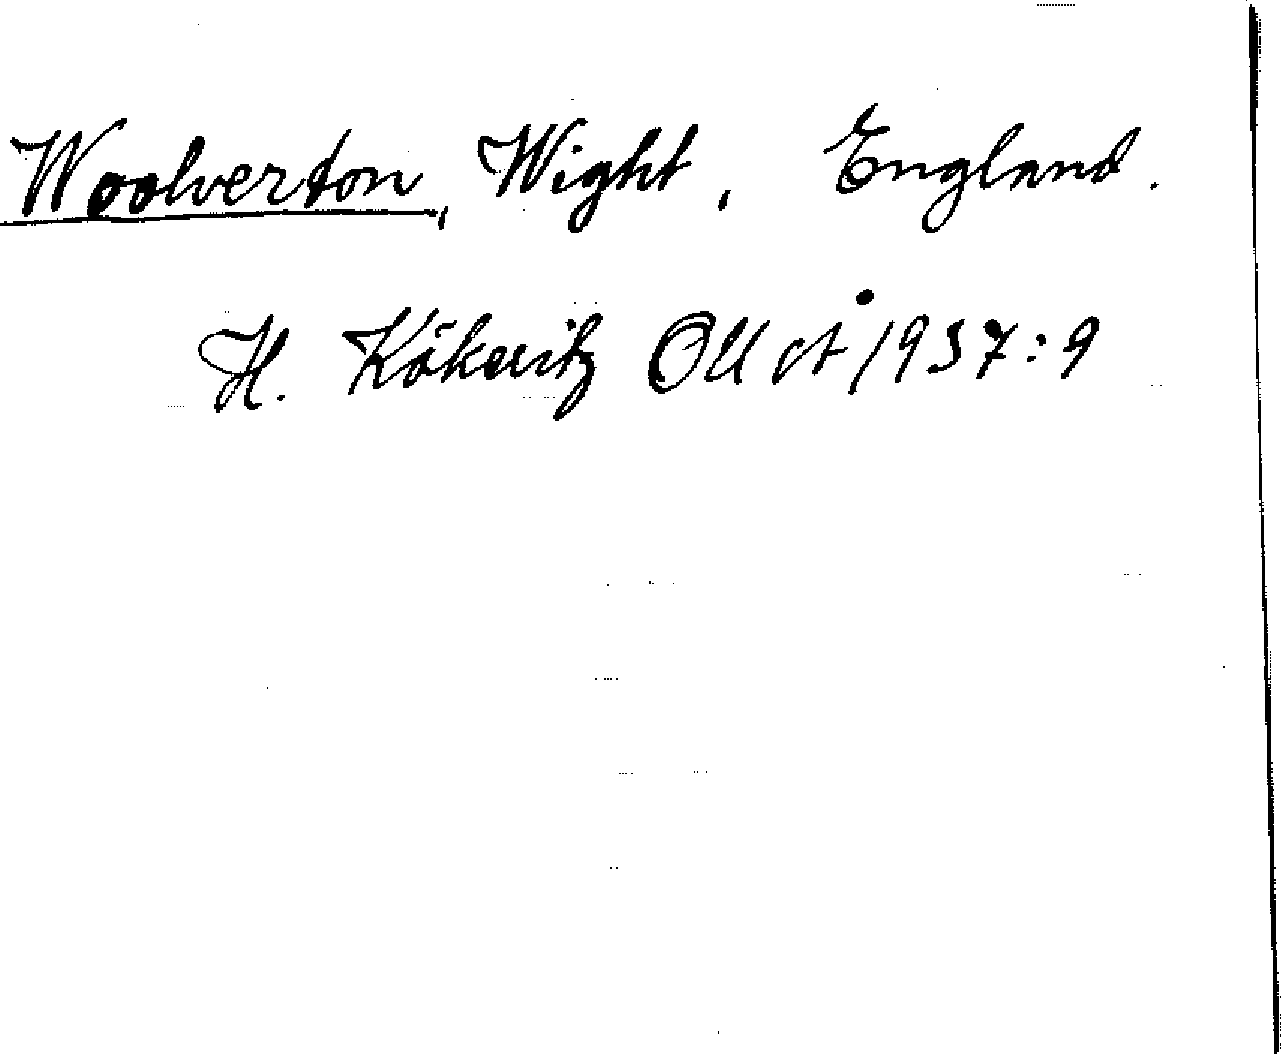 Woolverton, Wight, England.
H. Kökeritz OUÅ 1937:9